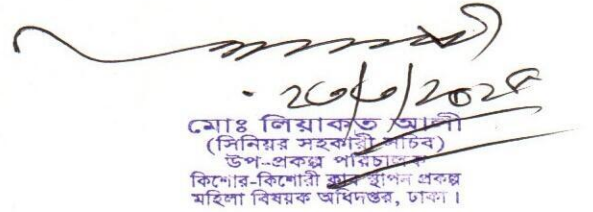 মোঃ লিয়াকত আলী
(সিনিয়র সহকারী সচিব)
উপ-প্রকল্প পরিচালক
কিশোর-কিশোরী ক্লাব স্থাপন প্রকল্প
মহিলা বিষয়ক অধিদপ্তর, ঢাকা।